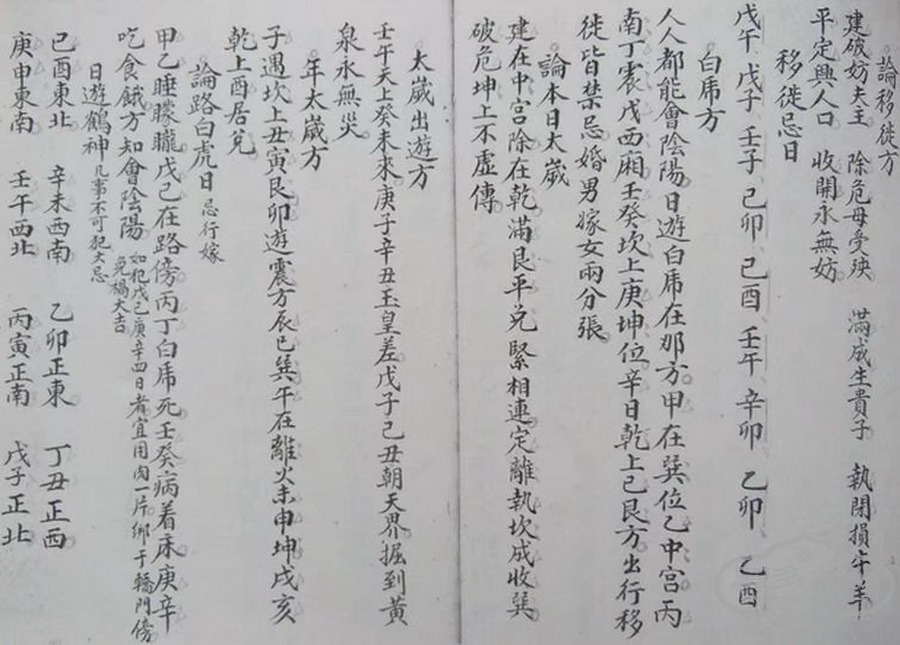 論移徙方
建破妨夫主　除危母受殃　滿成生貴子　執閉損牛羊
平定興人口　收開永無妨
移徙忌日
戊午　戊子　壬子　己卯　己酉　壬午　辛卯　乙卯　乙酉
白虎方
人人都能會陰陽日遊白虎在那方甲在巽位乙中宫丙
南丁震戊西廂壬癸坎上庚坤位辛日乾上己艮方出行移
徙皆禁忌婚男嫁女兩分張
論本日太歲
建在中宫除在乾滿艮平兑緊相連定離執坎成收巽
破危坤上不虛傳
太歲出遊方
壬午天上癸未來庚子辛丑玉皇差戊子己丑朝天界掘到黃
泉永無災
年太歲方
子遇坎上丑寅艮卯遊震方辰巳巽午在離火未申坤戌亥
乾上酉居兑
論路白虎日　忌行嫁
甲乙睡朦朧戊己在路傍丙丁白虎死壬癸病着床庚辛
吃食餓方知會陰陽　如犯戊己庚辛四日者宜用肉一片綁于轎門傍
免禍大吉
日遊鶴神　凡事不可犯大忌
己酉東北　辛未西南　乙卯正東　丁丑正西
庚申東南　壬午西北　丙寅正南　戊子正北